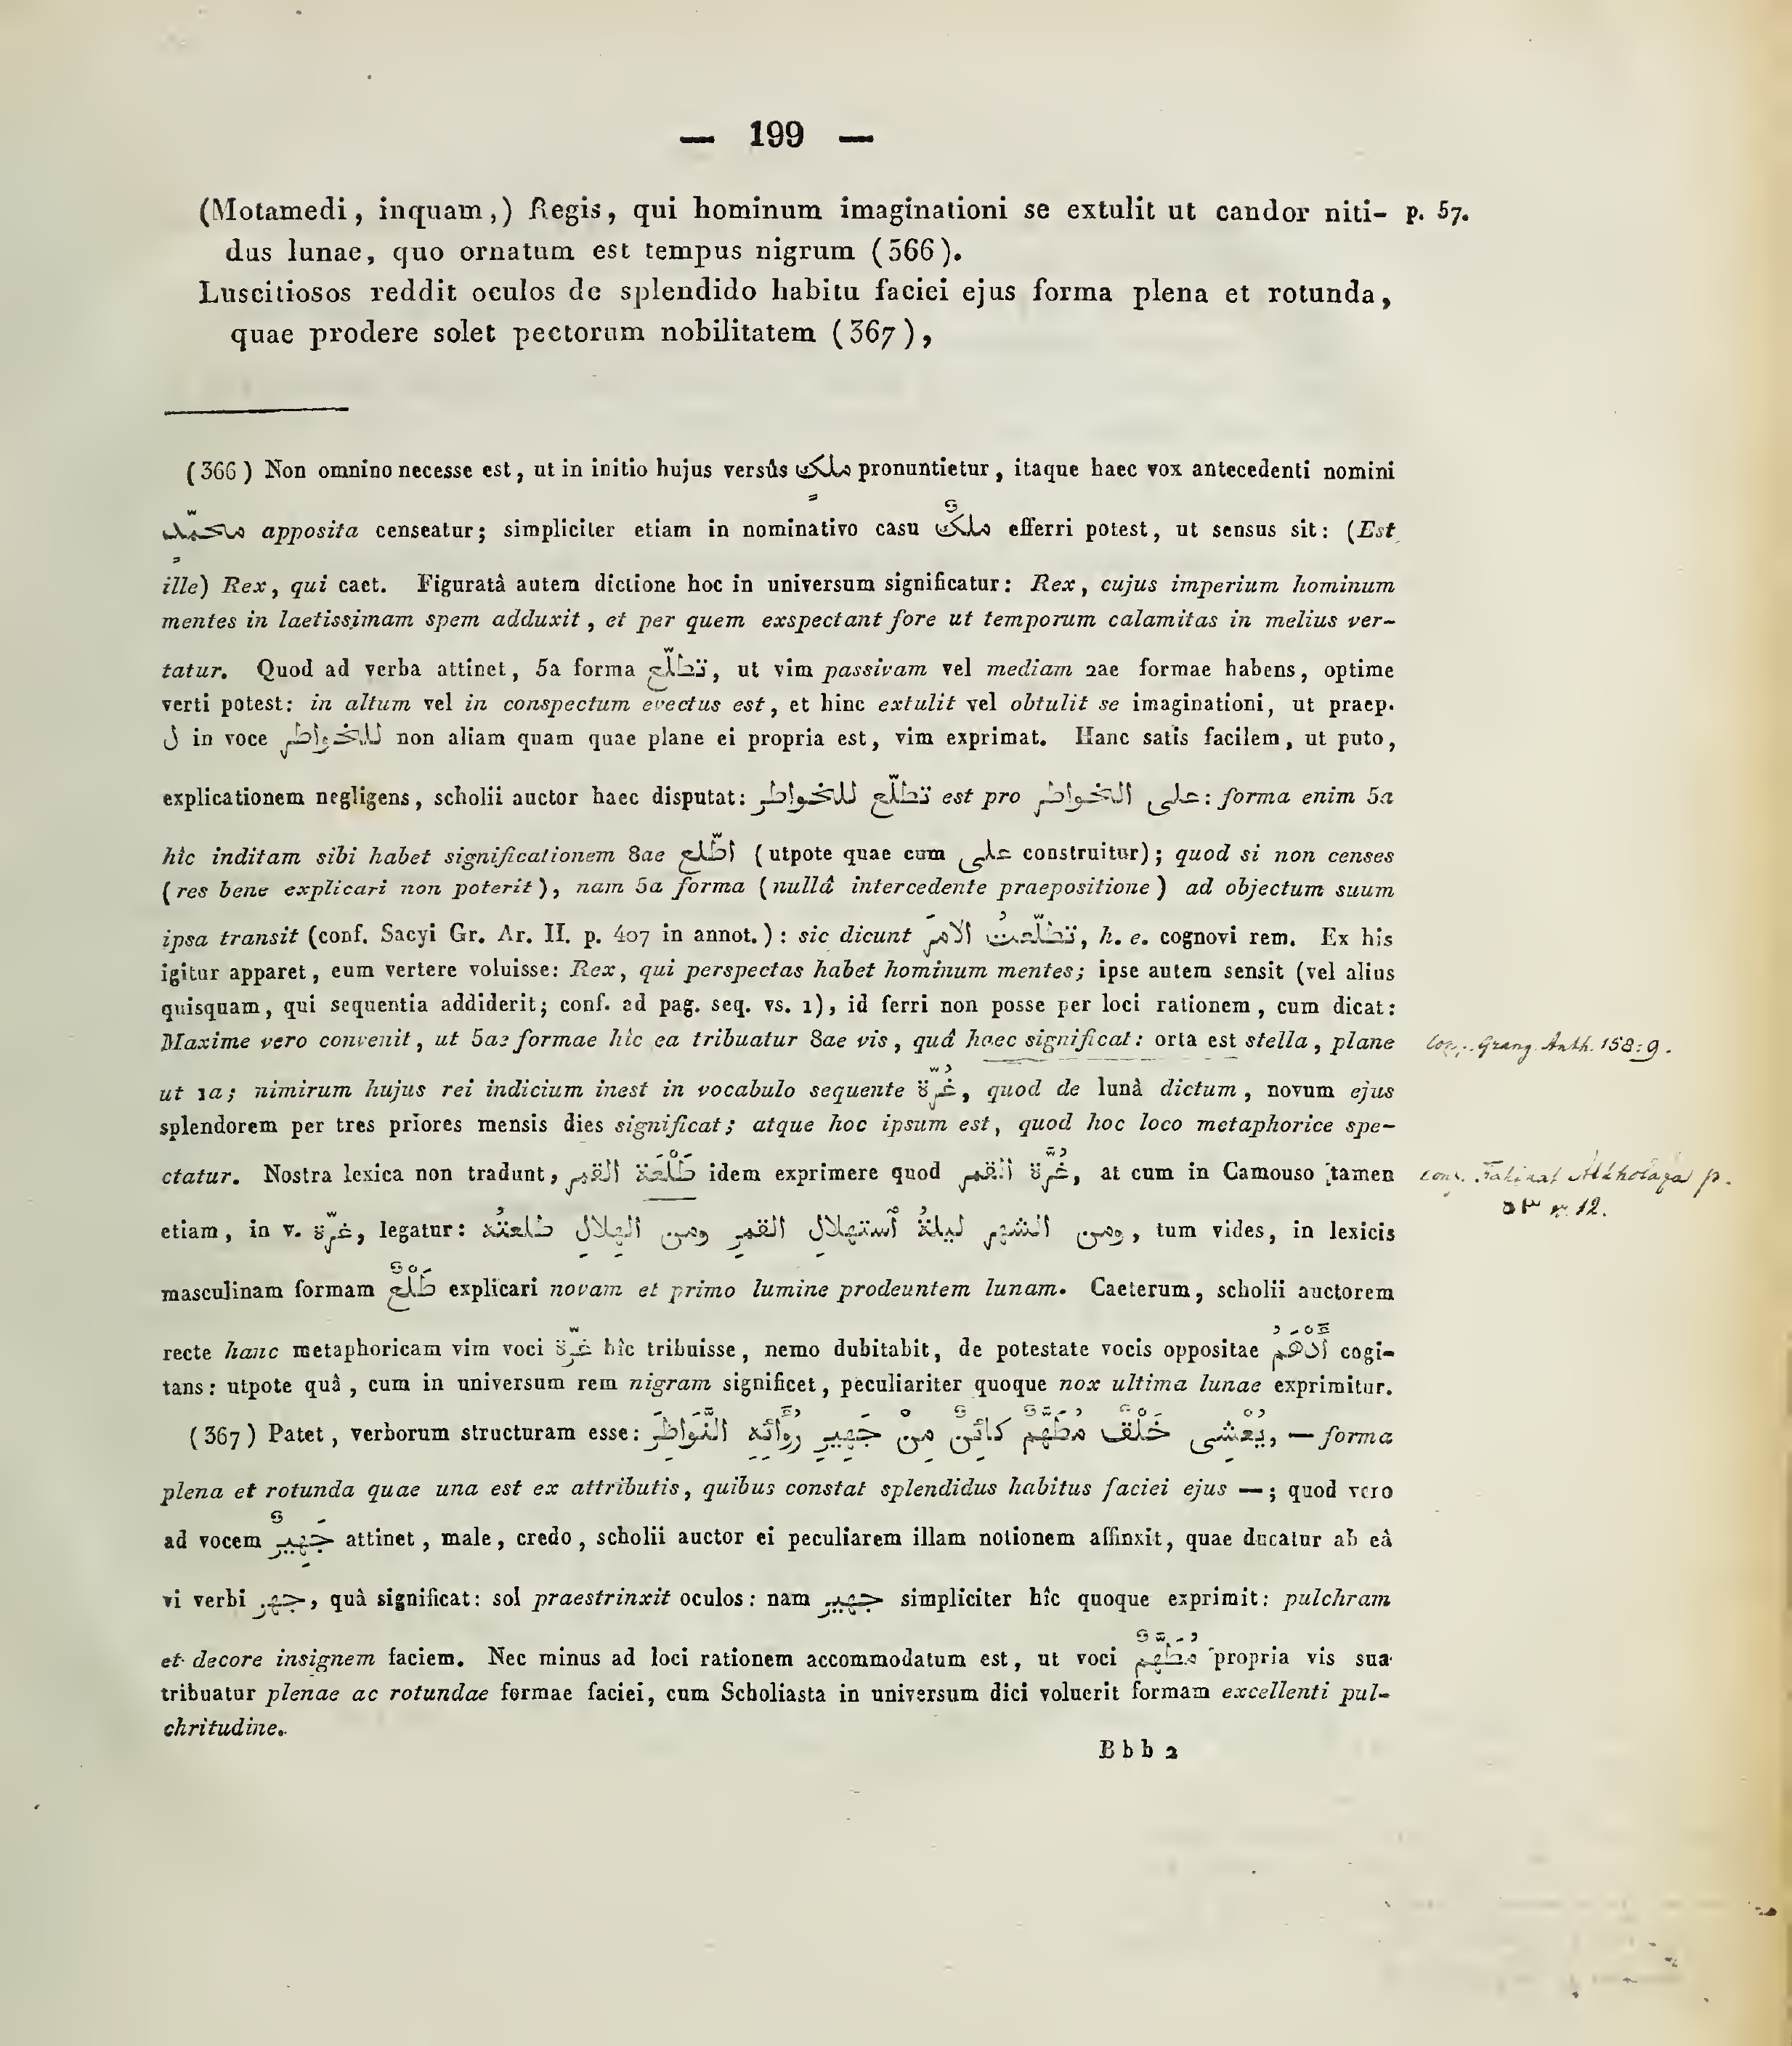 — 199 —
(Motamedi, inquam,) Regis, qui hominum imaginationi se extulit ut candor niti- p. 57.
dus lunae, quo ornatum est tempus nigrum (366).
Luscitiosos reddit oculos de splendido habitu faciei ejus forma plena et rotunda,
quae prodere solet pectorum nobilitatem (367),
(366) Non omnino necesse est, ut in initio hujus versûs ملكٍ pronuntietur, itaque haec vox antecedenti nomini
محمّدٍ apposita censeatur; simpliciter etiam in nominativo casu ملكٌ efferri potest, ut sensus sit: (Est
ille) Rex, qui caet. Figuratâ autem dictione hoc in universum significatur: Rex, cujus imperium hominum
mentes in laetissimam spem adduxit, et per quem exspectant fore ut temporum calamitas in melius ver-
tatur. Quod ad verba attinet, 5a forma تطلّع, ut vim passivam vel mediam 2ae formae habens, optime
verti potest: in altum vel in conspectum evectus est, et hinc extulit vel obtulit se imaginationi, ut praep.
ل in voce للخواطر non aliam quam quae plane ei propria est, vim exprimat. Hanc satis facilem, ut puto,
explicationem negligens, scholii auctor haec disputat: تطلّع للخواطر est pro على الخواطر: forma enim 5a
hîc inditam sibi habet significationem 8ae اطّلع (utpote quae cum على construitur); quod si non censes
(res bene explicari non poterit), nam 5a forma (nullâ intercedente praepositione) ad objectum suum
ipsa transit (conf. Sacyi Gr. Ar. II. p. 407 in annot.): sic dicunt تطلّعتُ الامرَ, h. e. cognovi rem. Ex his
igitur apparet, eum vertere voluisse: Rex, qui perspectas habet hominum mentes; ipse autem sensit (vel alius
quisquam, qui sequentia addiderit; conf. ad pag. seq. vs. 1), id ferri non posse per loci rationem, cum dicat:
Maxime vero convenit, ut 5ae formae hîc ea tribuatur 8ae vis, quâ haec significat: orta est stella, plane Grang. Anth. 158:9.
ut 1a; nimirum hujus rei indicium inest in vocabulo sequente غُرّة, quod de lunâ dictum, novum ejus
splendorem per tres priores mensis dies significat; atque hoc ipsum est, quod hoc loco metaphorice spe-
ctatur. Nostra lexica non tradunt, طَلْعَة القمر idem exprimere quod غُرَّة القمر, at cum in Camouso tamen p.
etiam, in v. غرّة, legatur: ومن الشهرِ ليلةُ ٱستهلالِ القمرِ ومن الهِلالِ طلعتُه, tum vides, in lexicis ٥٣ 12.
masculinam formam طَلْعٌ explicari novam et primo lumine prodeuntem lunam. Caeterum, scholii auctorem
recte hanc metaphoricam vim voci غرّة hîc tribuisse, nemo dubitabit, de potestate vocis oppositae أَدْهَمُ cogi-
tans: utpote quâ, cum in universum rem nigram significet, peculiariter quoque nox ultima lunae exprimitur.
(367) Patet, verborum structuram esse: يُعْشِى خَلْقٌ مُطَهَّمٌ كائِنٌ مِنْ جَهِيرِ رُوَّائِهِ النَّوَاظِرَ, — forma
plena et rotunda quae una est ex attributis, quibus constat splendidus habitus faciei ejus —; quod vero
ad vocem جَهِيرٌ attinet, male, credo, scholii auctor ei peculiarem illam notionem affinxit, quae ducatur ab eâ
vi verbi جهر, quâ significat: sol praestrinxit oculos: nam جهير simpliciter hîc quoque exprimit: pulchram
et decore insignem faciem. Nec minus ad loci rationem accommodatum est, ut voci مُطَهَّمٌ propria vis sua
tribuatur plenae ac rotundae formae faciei, cum Scholiasta in universum dici voluerit formam excellenti pul-
chritudine.
Bbb 2